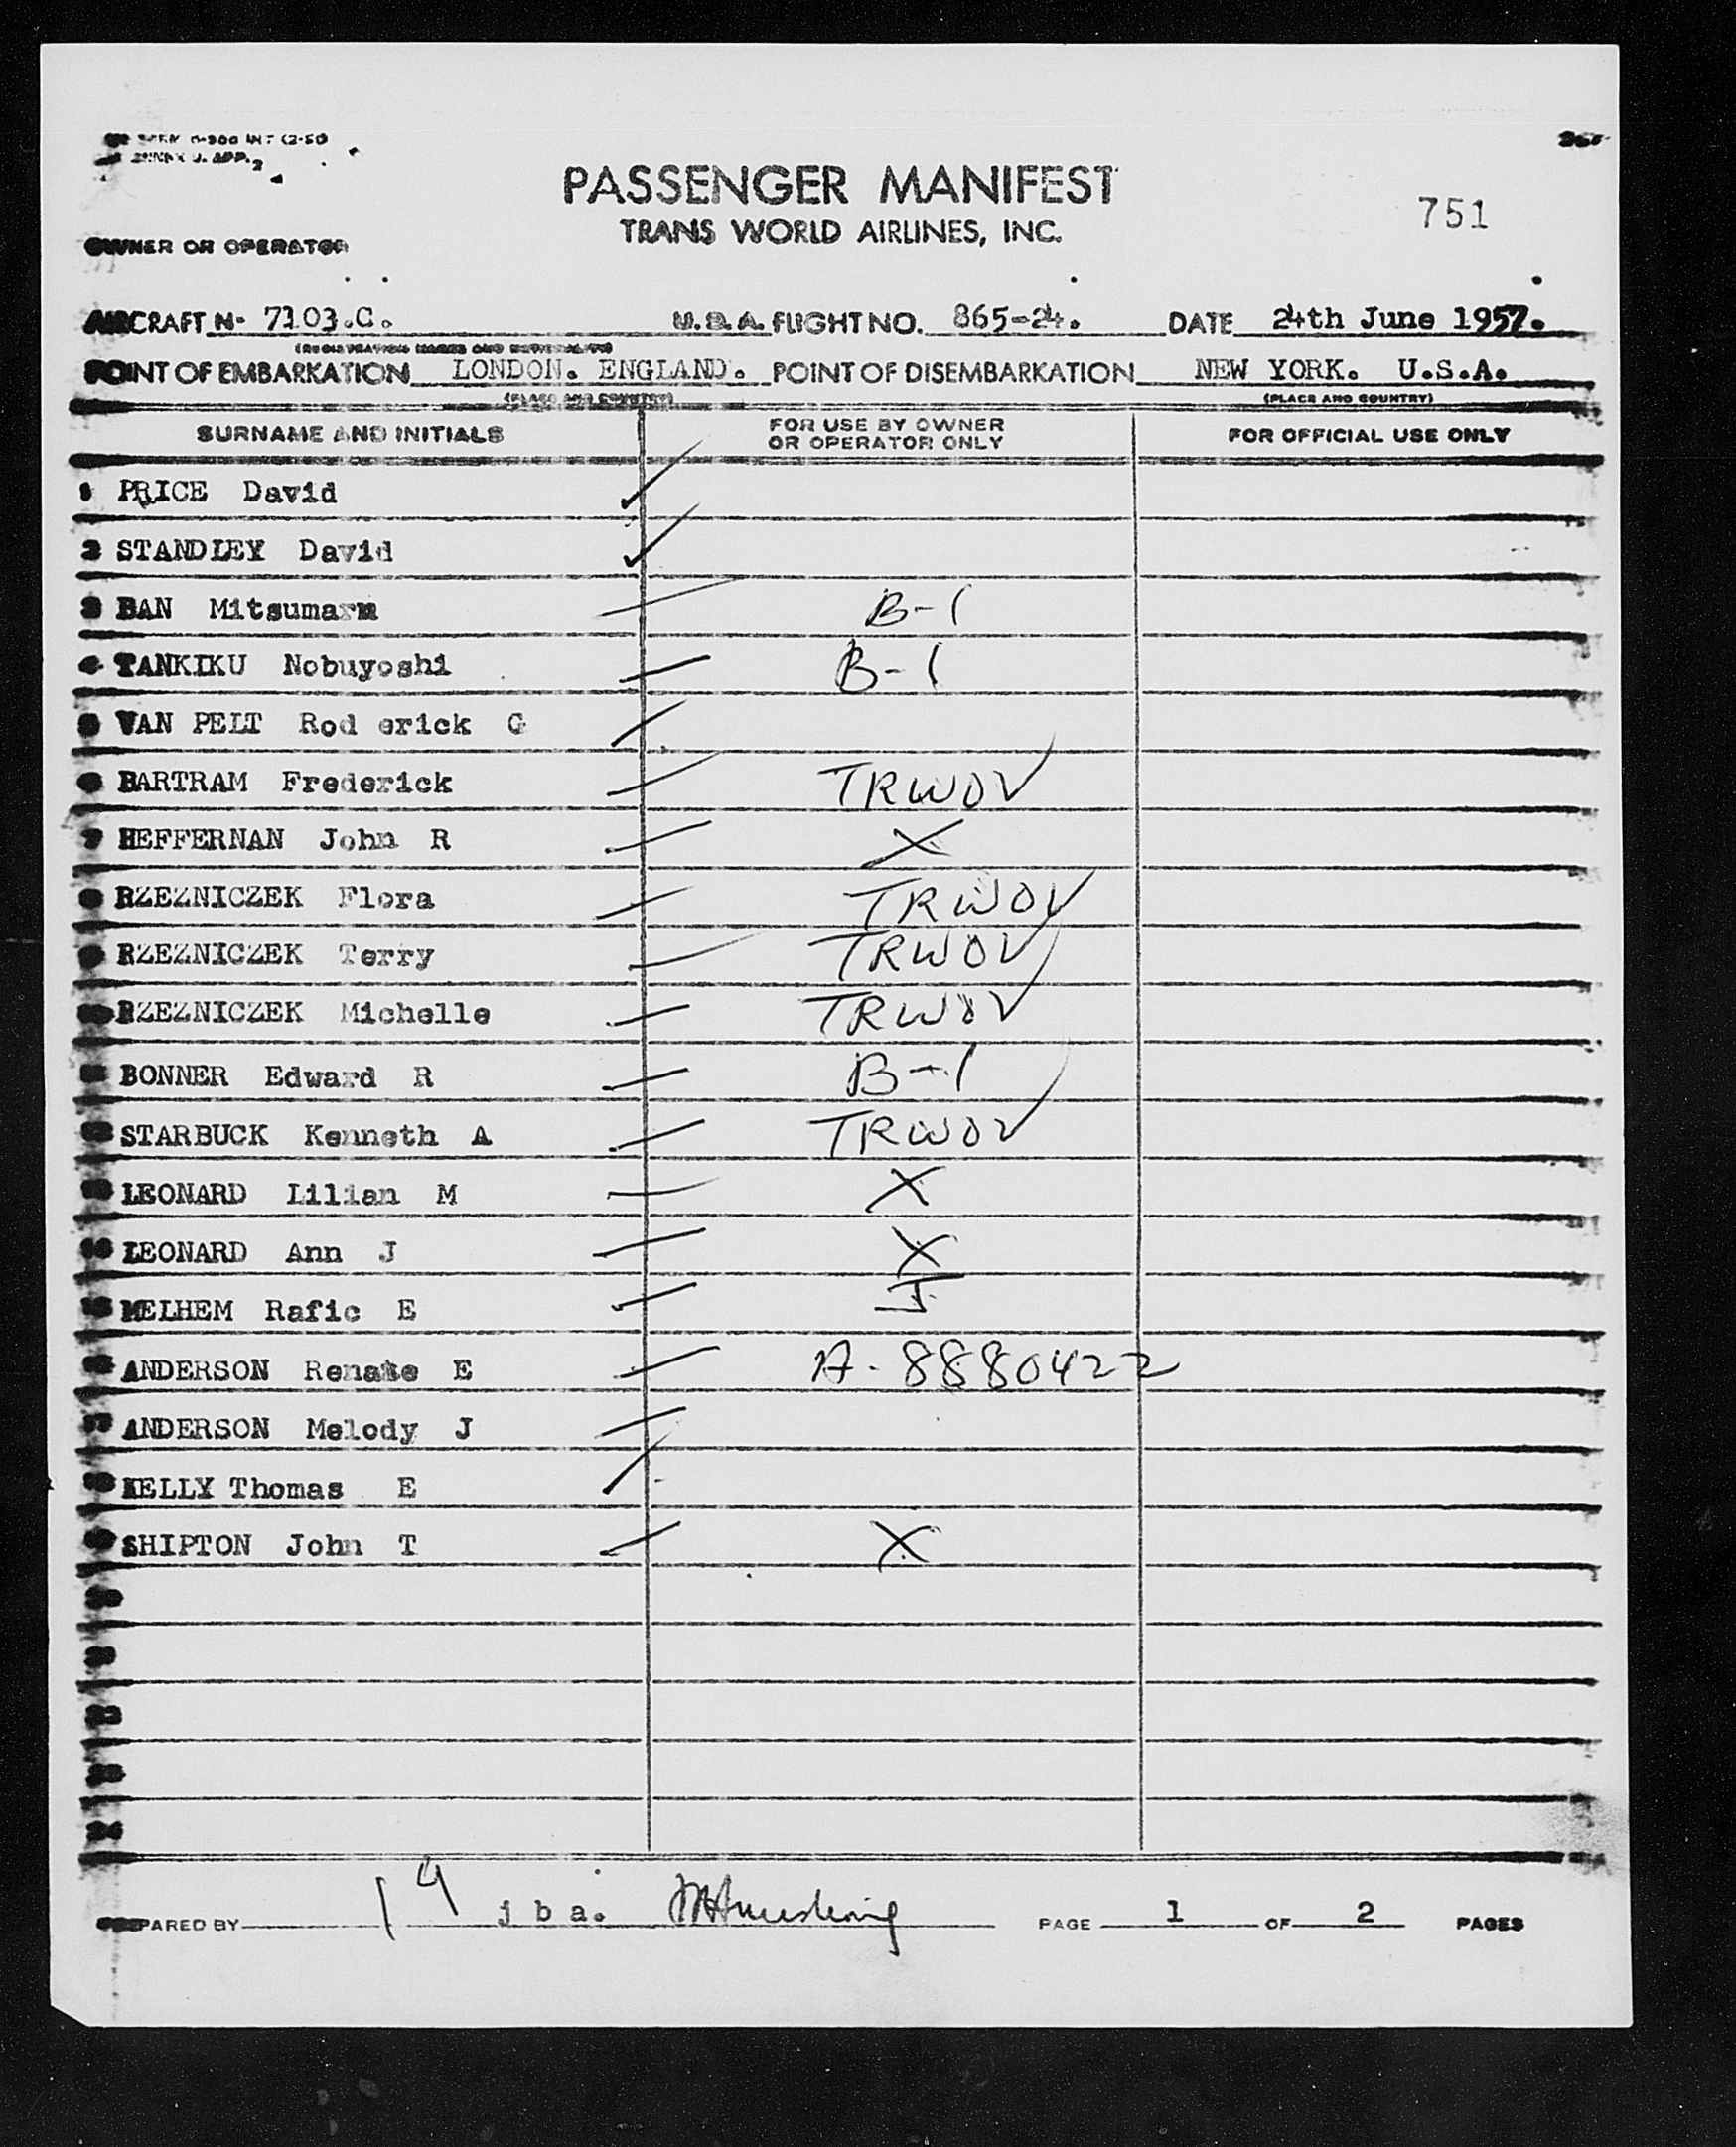 PASSENGER MANIFEST
TRANS WORLD AIRLINES, INC.
751
OWNER OR OPERATOR
AIRCRAFT N- 7103.C. FLIGHT NO. 865-24. DATE 24th June 1957.
POINT OF EMBARKATION LONDON. ENGLAND. POINT OF DISEMBARKATION NEW YORK. U.S.A.
(PLACE AND COUNTRY) (PLACE AND COUNTRY)
SURNAME AND INITIALS FOR USE BY OWNER OR OPERATOR ONLY FOR OFFICIAL USE ONLY
1 PRICE David
2 STANDLEY David
3 BAN B-1
4 TANKIKU Nobuyoshi B-1
VAN PELT Rod erick G
BARTRAM Frederick TRWOV
7 HEFFERNAN John R X
RZEZNICZEK Flora TRWOV
RZEZNICZEK Terry TRWOV
RZEZNICZEK Michelle TRWOV
BONNER Edward R B-1
STARBUCK Kenneth A TRWOV
LEONARD Lilian M X
LEONARD Ann J X
MELHEM Rafic E J
ANDERSON Renate E A-8880422
ANDERSON Melody J
KELLY Thomas E
SHIPTON John T X
19
PREPARED BY j b a. PAGE 1 OF 2 PAGES